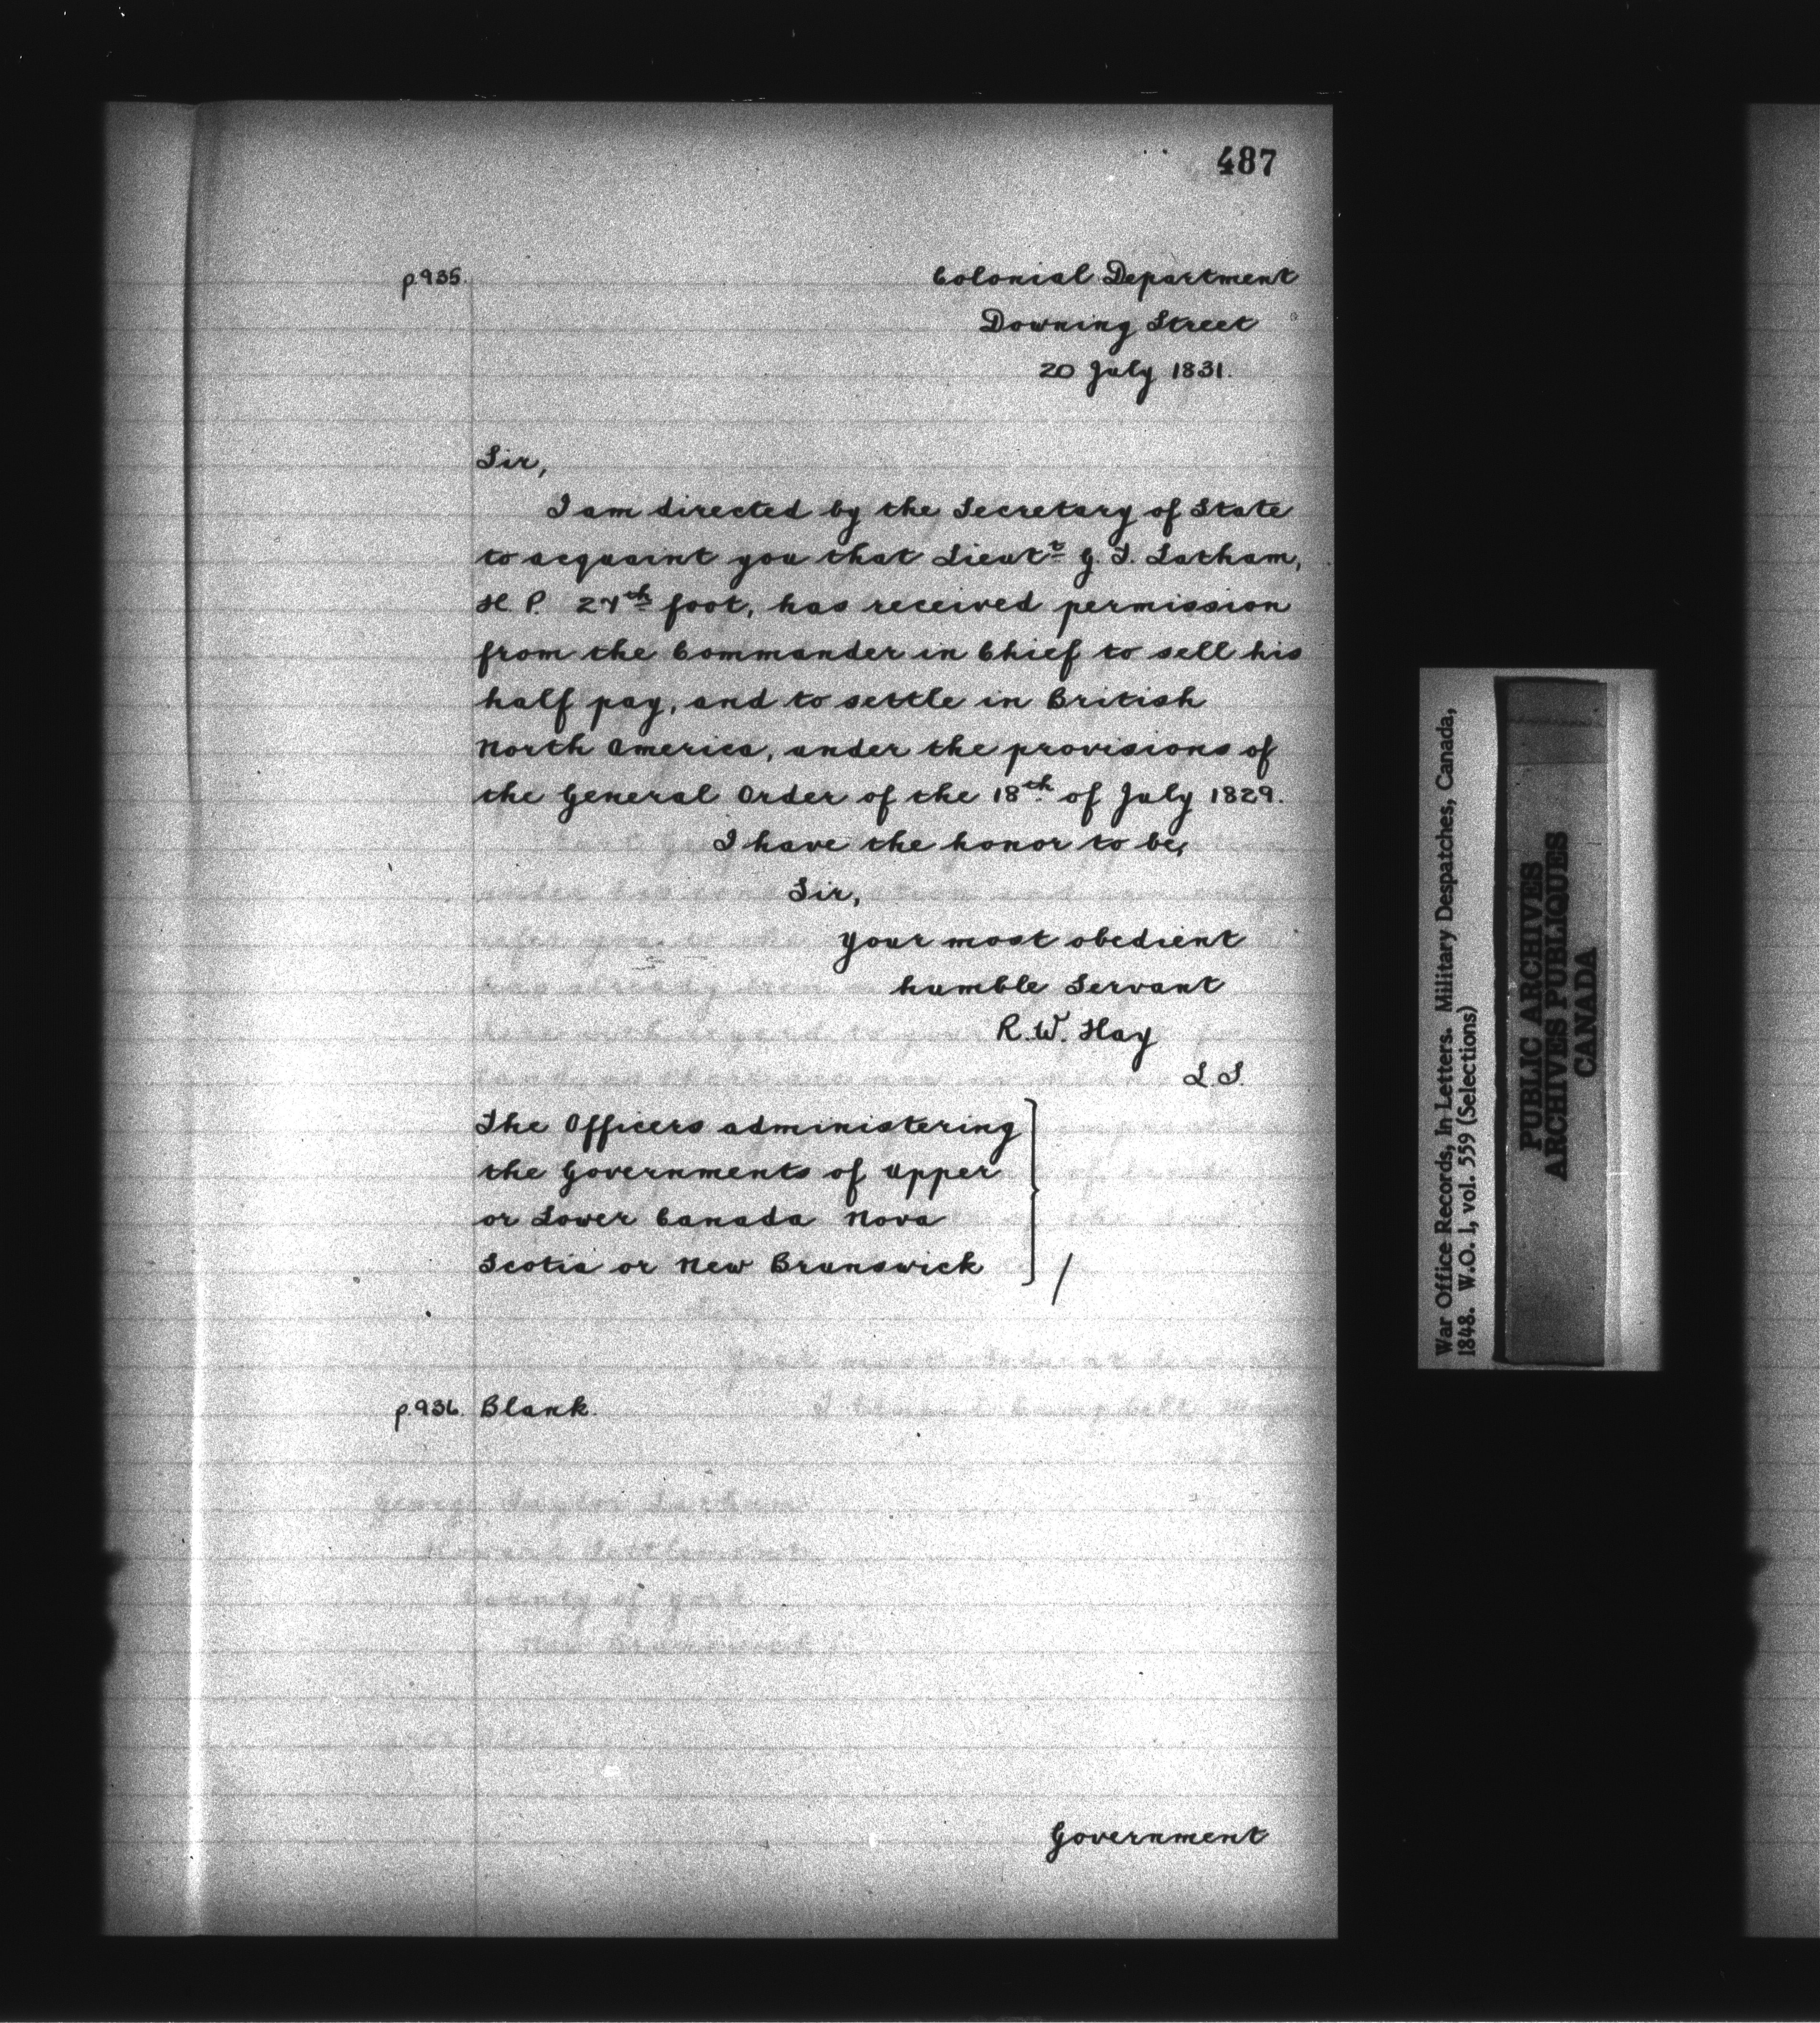 487
p.935.
Colonial Department
Downing Street
20 July 1831.
Sir,
I am directed by the Secretary of State
to acquaint you that Lieutt G. T. Latham,
H. P. 27th foot, has received permission
from the Commander in Chief to sell his
half pay, and to settle in British
North America, under the provisions of
the General Order of the 18th of July 1829.
I have the honor to be,
Sir,
your most obedient
humble Servant
R. W. Hay
L.S.
The Officers administering
the Governments of Upper
or Lower Canada Nova
Scotia or New Brunswick
p.936. Blank.
Government
War Office Records, In Letters. Military Despatches, Canada,
1848. W.O. 1, vol. 559 (Selections)
PUBLIC ARCHIVES
ARCHIVES PUBLIQUES
CANADA